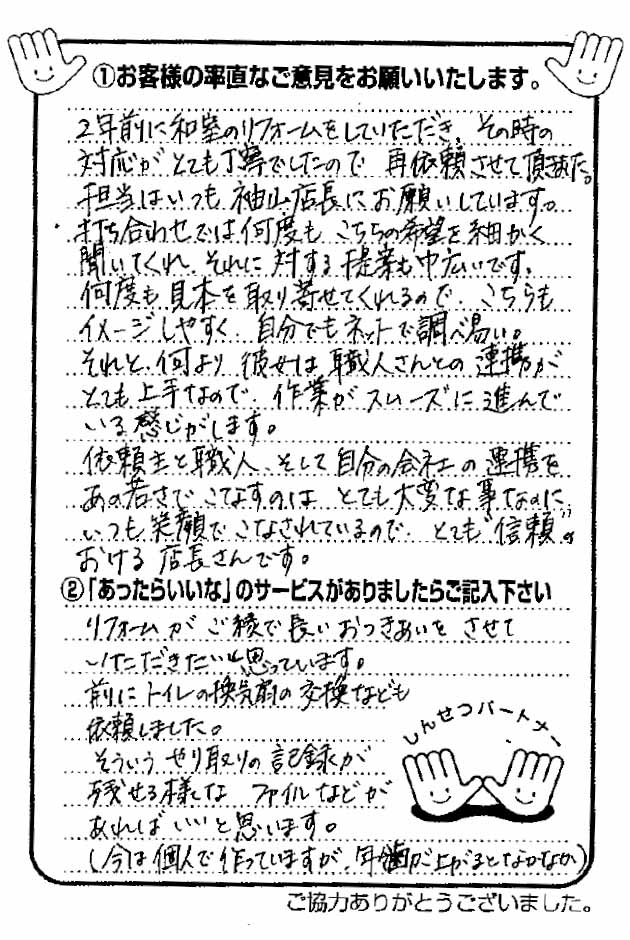 ①お客様の率直なご意見をお願いいたします。
2年前に和室のリフォームをしていただき、その時の
対応がとても丁寧でしたので 再依頼させて頂きました。
担当はいつも 袖山店長にお願いしています。
打ち合わせでは何度も こちらの希望を細かく
聞いてくれ、それに対する提案も巾広いです。
何度も見本を取り寄せてくれるので、こちらも
イメージしやすく、自分でもネットで調べ易い。
それと、何より 彼女は 職人さんとの連携が
とても上手なので、作業がスムーズに進んで
いる感じがします。
依頼主と職人、そして自分の会社の連携を
あの若さで こなすのは とても大変な事なのに、
いつも笑顔でこなされているので、とても"信頼"の
おける 店長さんです。
②「あったらいいな」のサービスがありましたらご記入下さい
リフォームが ご縁で長いおつきあいを させて
いただきたいと思っています。
前にトイレの換気扇の交換なども
依頼しました。
そういう やり取りの記録が
残せる様な ファイルなどが
あればいいと思います。
(今は個人で作っていますが、年齢が上がるとなかなか)
しんせつパートナー
ご協力ありがとうございました。